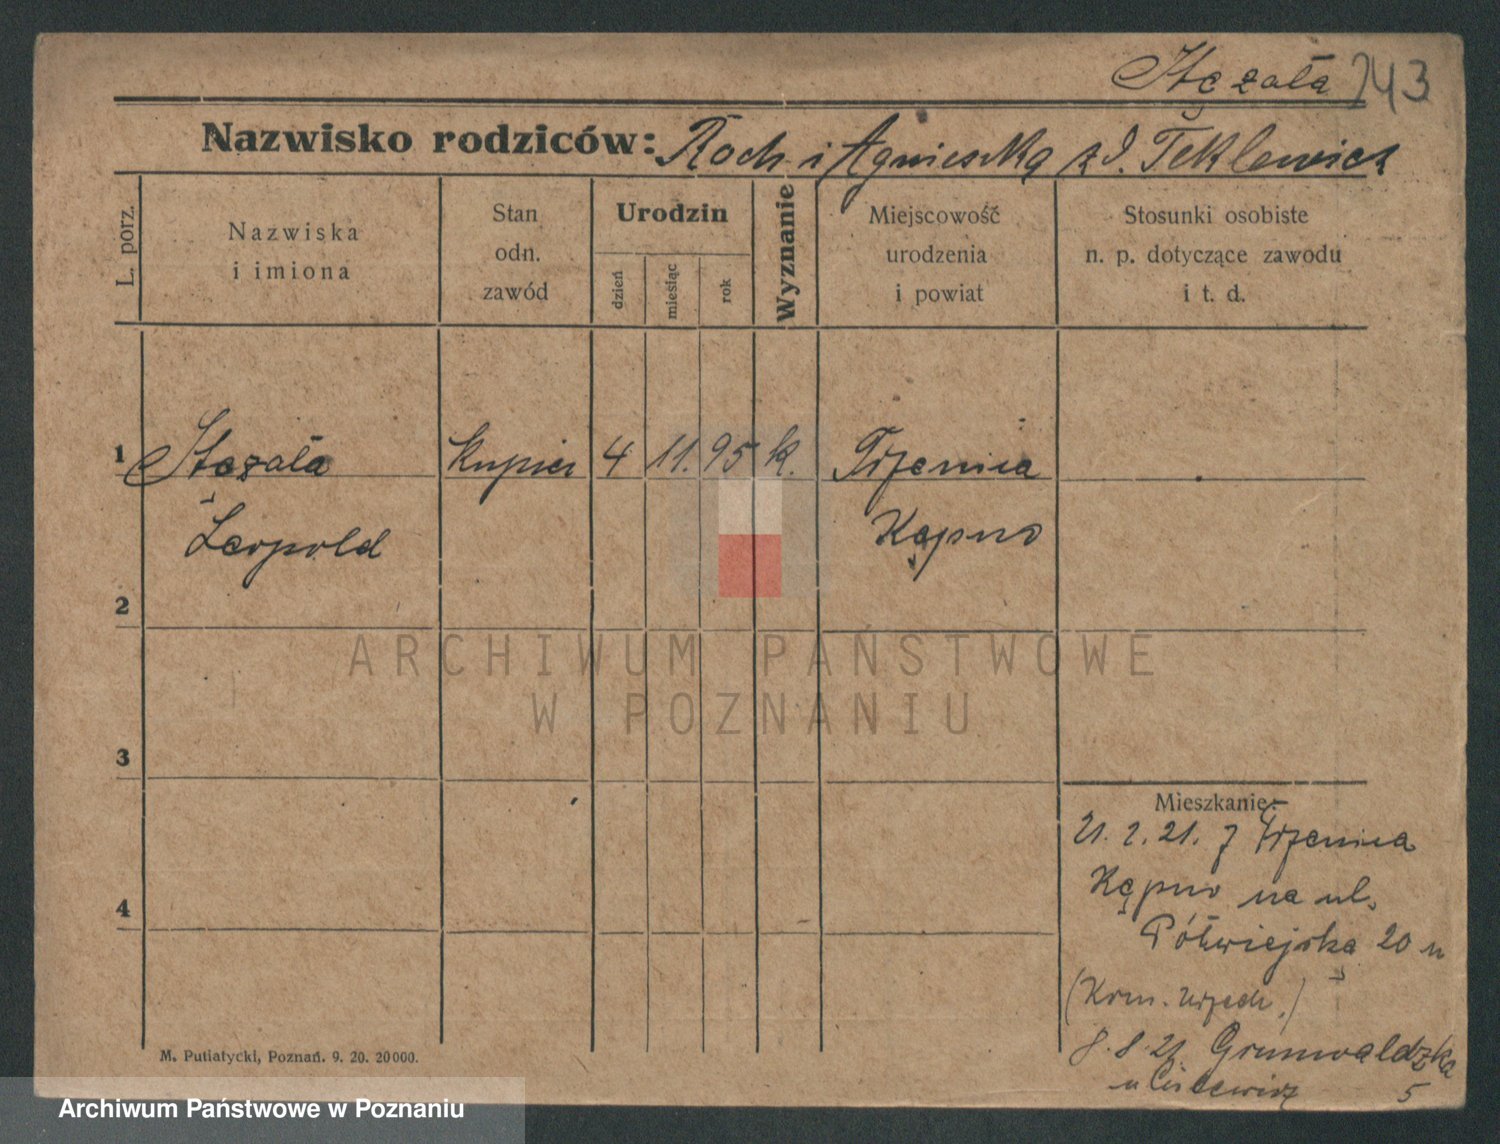 Stęzała 243
Nazwisko rodziców: Roch i Agnieszka z d. Teklewicz
L. porz.
Nazwiska
i imiona
Stan
odn.
zawód
Urodzin
dzień
miesiąc
rok
Wyznanie
Miejscowość
urodzenia
i powiat
Stosunki osobiste
n. p. dotyczące zawodu
i t. d.
1 Stęzała kupiec 4 11. 95 k. Trzenica
Leopold Kępno
2
ARCHIWUM PAŃSTWOWE
W POZNANIU
3
Mieszkanie:
21. 2. 21. z Trzenica
Kępno na ul.
4
Półwiejska 20 u
(Kom. urzęd.)
8. 8. 21. Grunwaldzka
5
M. Putiatycki, Poznań. 9. 20. 20000.
Archiwum Państwowe w Poznaniu